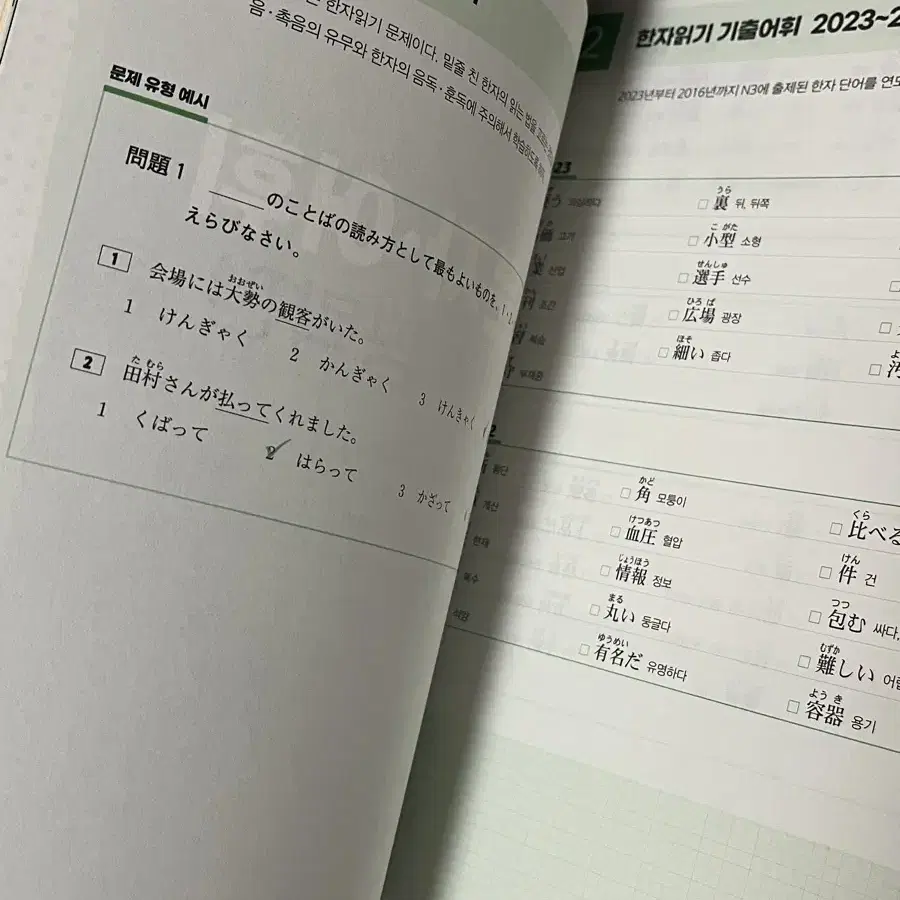 한자읽기 문제이다. 밑줄 친 한자의 읽는 법을
음·촉음의 유무와 한자의 음독·훈독에 주의해서 학습하도록
문제 유형 예시
問題1 ____のことばの読み方として最もよいものを、1・
えらびなさい。
1 会場には大勢の観客がいた。
おおぜい
1 けんぎゃく 2 かんぎゃく 3 けんきゃく
2 田村さんが払ってくれました。
たむら
1 くばって 2 はらって 3 かざって
2 한자읽기 기출어휘 2023~2
2023년부터 2016년까지 N3에 출제된 한자 단어를 연도
23
うら
□ 裏 뒤, 뒤쪽
고기
こがた
□ 小型 소형
산업
せんしゅ
□ 選手 선수
조간
ひろば
□ 広場 광장
복습
ほそ
□ 細い 좁다
부재중
よ
□ 汚
2
판단
かど
□ 角 모퉁이
くら
□ 比べる
계산
けつあつ
□ 血圧 혈압
けん
□ 件 건
현재
じょうほう
□ 情報 정보
つつ
□ 包む 싸다,
복수
まる
□ 丸い 둥글다
むずか
□ 難しい 어렵
석양
ゆうめい
□ 有名だ 유명하다
ようき
□ 容器 용기